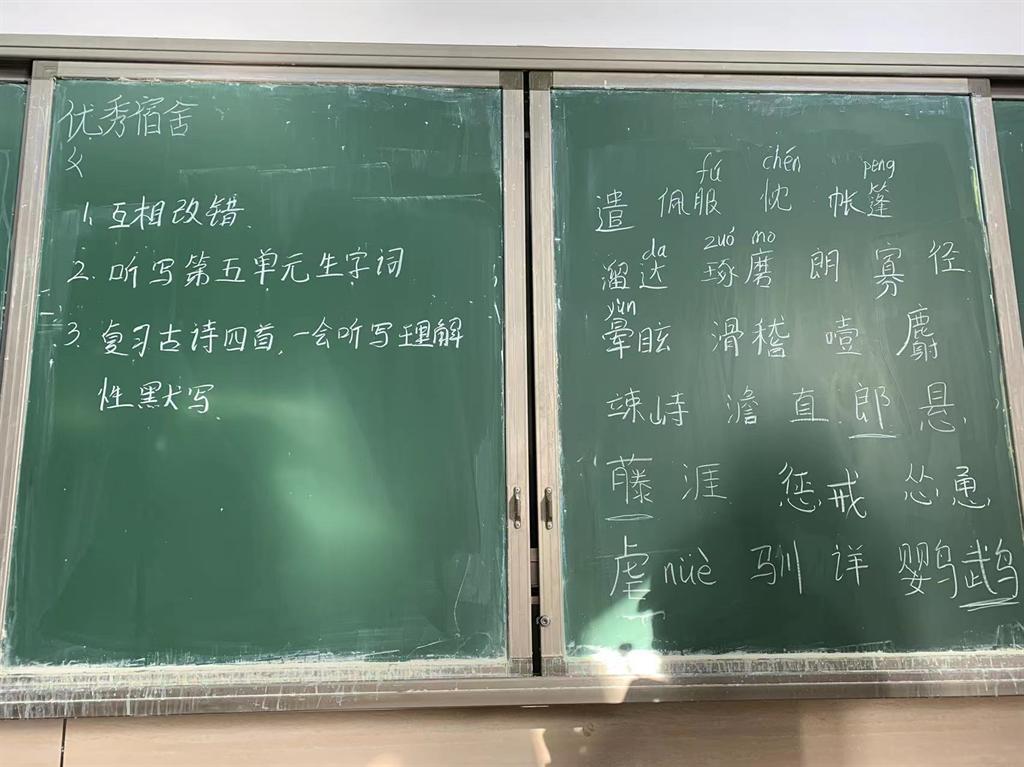 优秀宿舍
1. 互相改错.
2. 听写第五单元生字词
3. 复习古诗四首, 一会听写理解
性默写.
fú chén peng
遣 佩服 忱 帐篷
da zuó mo
溜达 琢磨 朗 寡 径
yùn
晕眩 滑稽 噎 麝
竦峙 澹 直 郎 悬
藤 涯 惩戒 怂恿
虐 nüè 驯 详 鹦鹉